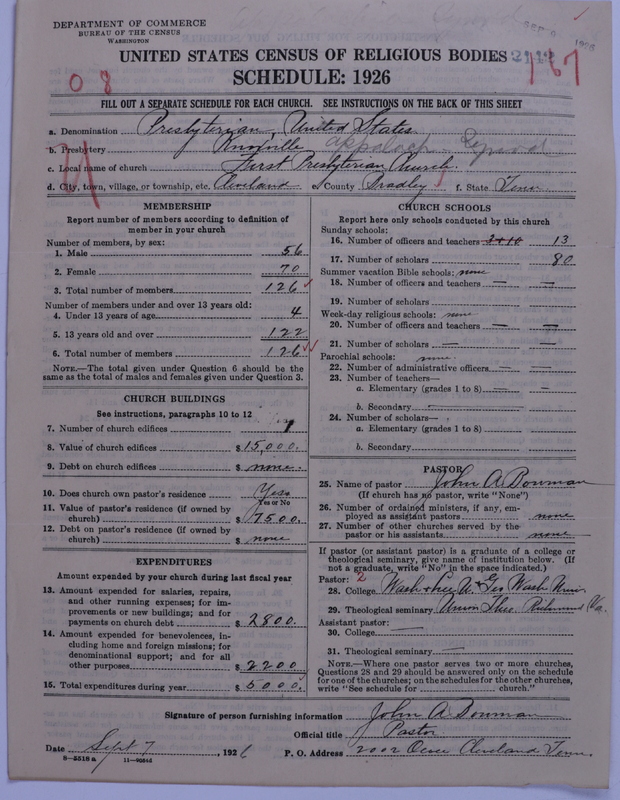 DEPARTMENT OF COMMERCE
BUREAU OF THE CENSUS
WASHINGTON
UNITED STATES CENSUS OF RELIGIOUS BODIES
SCHEDULE: 1926
2142
167
0 8
FILL OUT A SEPARATE SCHEDULE FOR EACH CHURCH. SEE INSTRUCTIONS ON THE BACK OF THIS SHEET
a. Denomination Presbyterian, United States
b. Presbytery Knoxville Appalach Synod
c. Local name of church First Presbyterian Church.
d. City, town, village, or township, etc. Cleveland e. County Bradley f. State Tenn
MEMBERSHIP
Report number of members according to definition of member in your church
Number of members, by sex:
1. Male 56
2. Female 70
3. Total number of members 126
Number of members under and over 13 years old:
4. Under 13 years of age 4
5. 13 years old and over 122
6. Total number of members 126
NOTE.—The total given under Question 6 should be the same as the total of males and females given under Question 3.
CHURCH BUILDINGS
See instructions, paragraphs 10 to 12
7. Number of church edifices 1
8. Value of church edifices $ 15,000.
9. Debt on church edifices $ none.
10. Does church own pastor's residence Yes
Yes or No
11. Value of pastor's residence (if owned by church) $ 7500.
12. Debt on pastor's residence (if owned by church) $ none
EXPENDITURES
Amount expended by your church during last fiscal year
13. Amount expended for salaries, repairs, and other running expenses; for improvements or new buildings; and for payments on church debt $ 2800.
14. Amount expended for benevolences, including home and foreign missions; for denominational support; and for all other purposes $ 2200
15. Total expenditures during year $ 5000.
CHURCH SCHOOLS
Report here only schools conducted by this church
Sunday schools:
16. Number of officers and teachers 3+10 13
17. Number of scholars 80
Summer vacation Bible schools: none
18. Number of officers and teachers — —
19. Number of scholars
Week-day religious schools: none
20. Number of officers and teachers — —
21. Number of scholars — —
Parochial schools: none.
22. Number of administrative officers — —
23. Number of teachers—
a. Elementary (grades 1 to 8) — —
b. Secondary
24. Number of scholars—
a. Elementary (grades 1 to 8)
b. Secondary
PASTOR
25. Name of pastor John A Bowman
(If church has no pastor, write "None")
26. Number of ordained ministers, if any, employed as assistant pastors none
27. Number of other churches served by the pastor or his assistants none
If pastor (or assistant pastor) is a graduate of a college or theological seminary, give name of institution below. (If not a graduate, write "No" in the space indicated.)
Pastor: 2
28. College Wash & Lee U. & Geo Wash Univ
29. Theological seminary Union Theo. Richmond Va.
Assistant pastor:
30. College —
31. Theological seminary —
NOTE.—Where one pastor serves two or more churches, Questions 28 and 29 should be answered only on the schedule for one of the churches; on the schedules for the other churches, write "See schedule for church."
Signature of person furnishing information John A Bowman
Official title Pastor
Date Sept 7, 1926
P. O. Address 2002 Ocoee Cleveland Tenn.
8—5518 a 11—90545